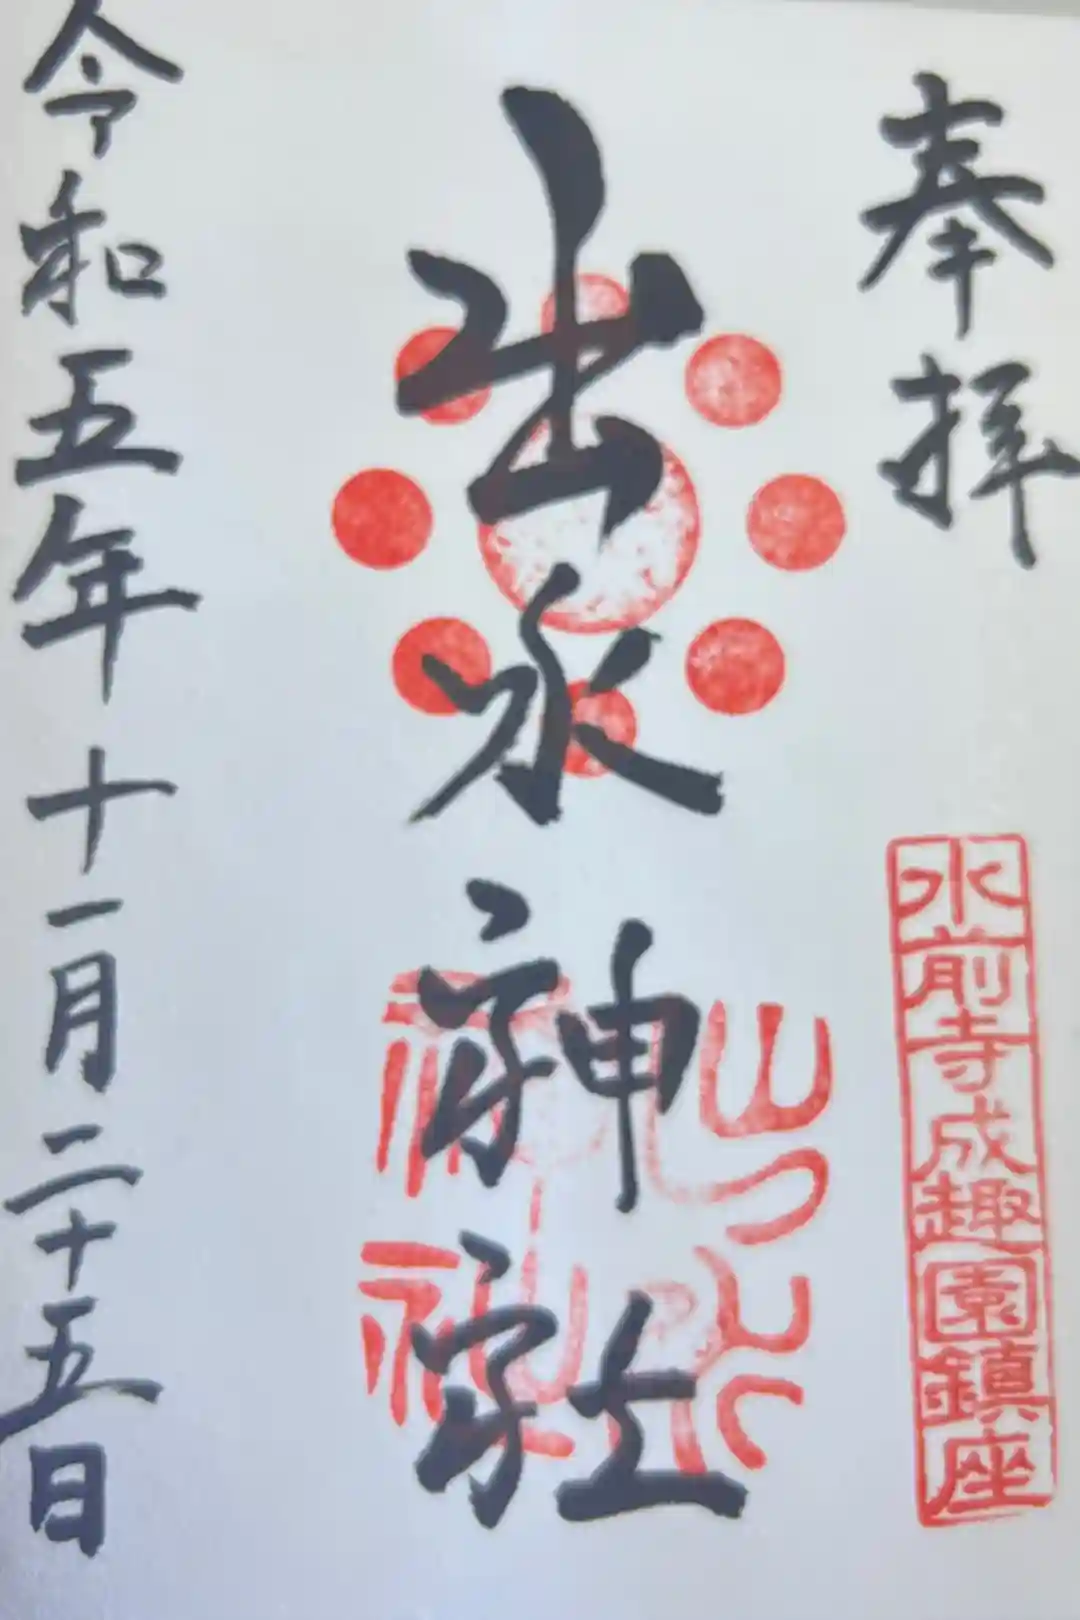 奉拝
水前寺成趣園鎮座
出水神社
出水神社
令和五年十一月二十五日